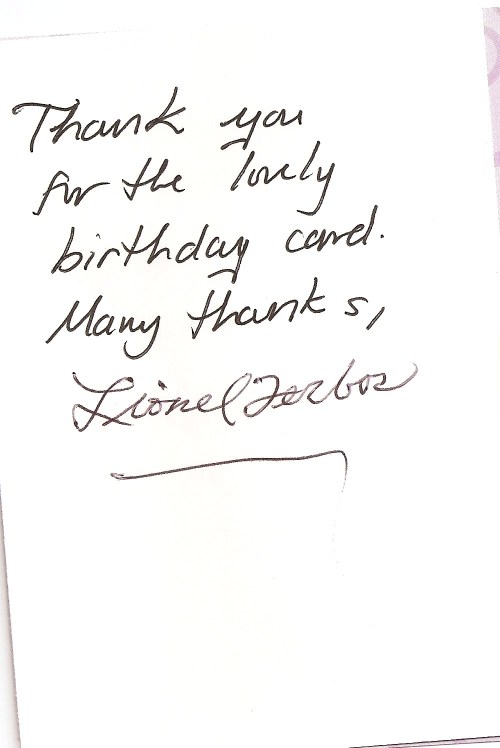 Thank you
for the lovely
birthday card.
Many thanks,
Lionel Ferbos